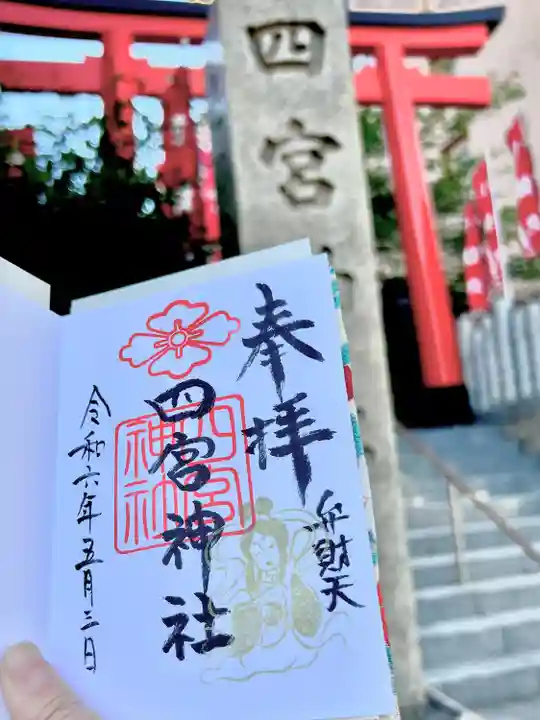 四宮
奉拝
弁財天
四宮神社
四宮神社
令和六年五月三日